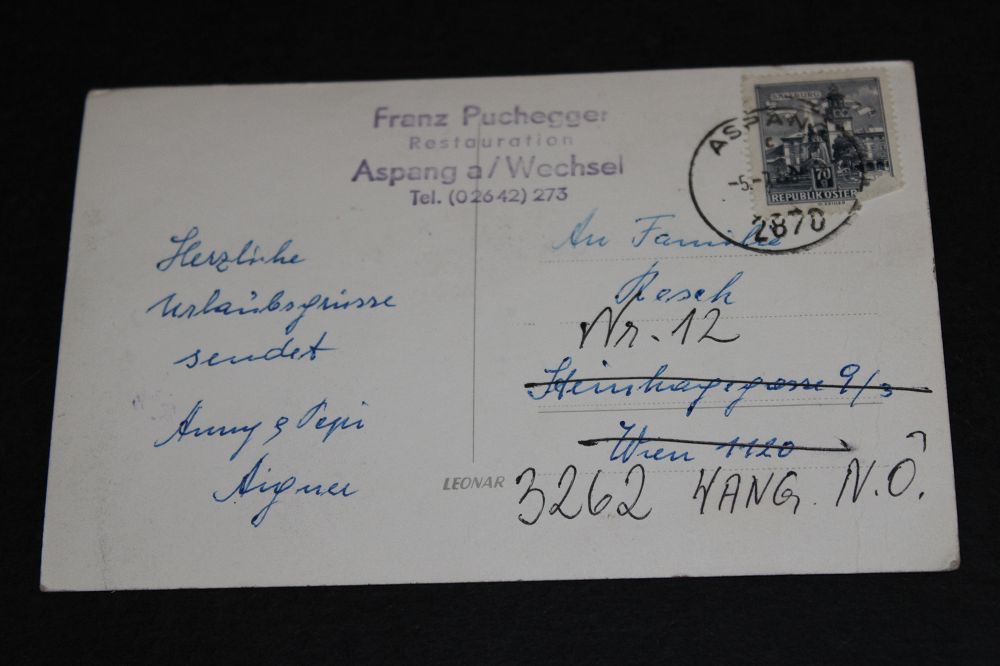 Franz Puchegger
Restauration
Aspang a/Wechsel
Tel. (02642) 273
SALZBURG
70
REPUBLIK ÖSTER
ASPAN
-5.-7.
2870
Herzliche
Urlaubsgrüsse
sendet
Anny & Pepi
Aigner
An Familie
Resch
Nr. 12
9/3
Wien 1120
3262 WANG N.Ö.
LEONAR